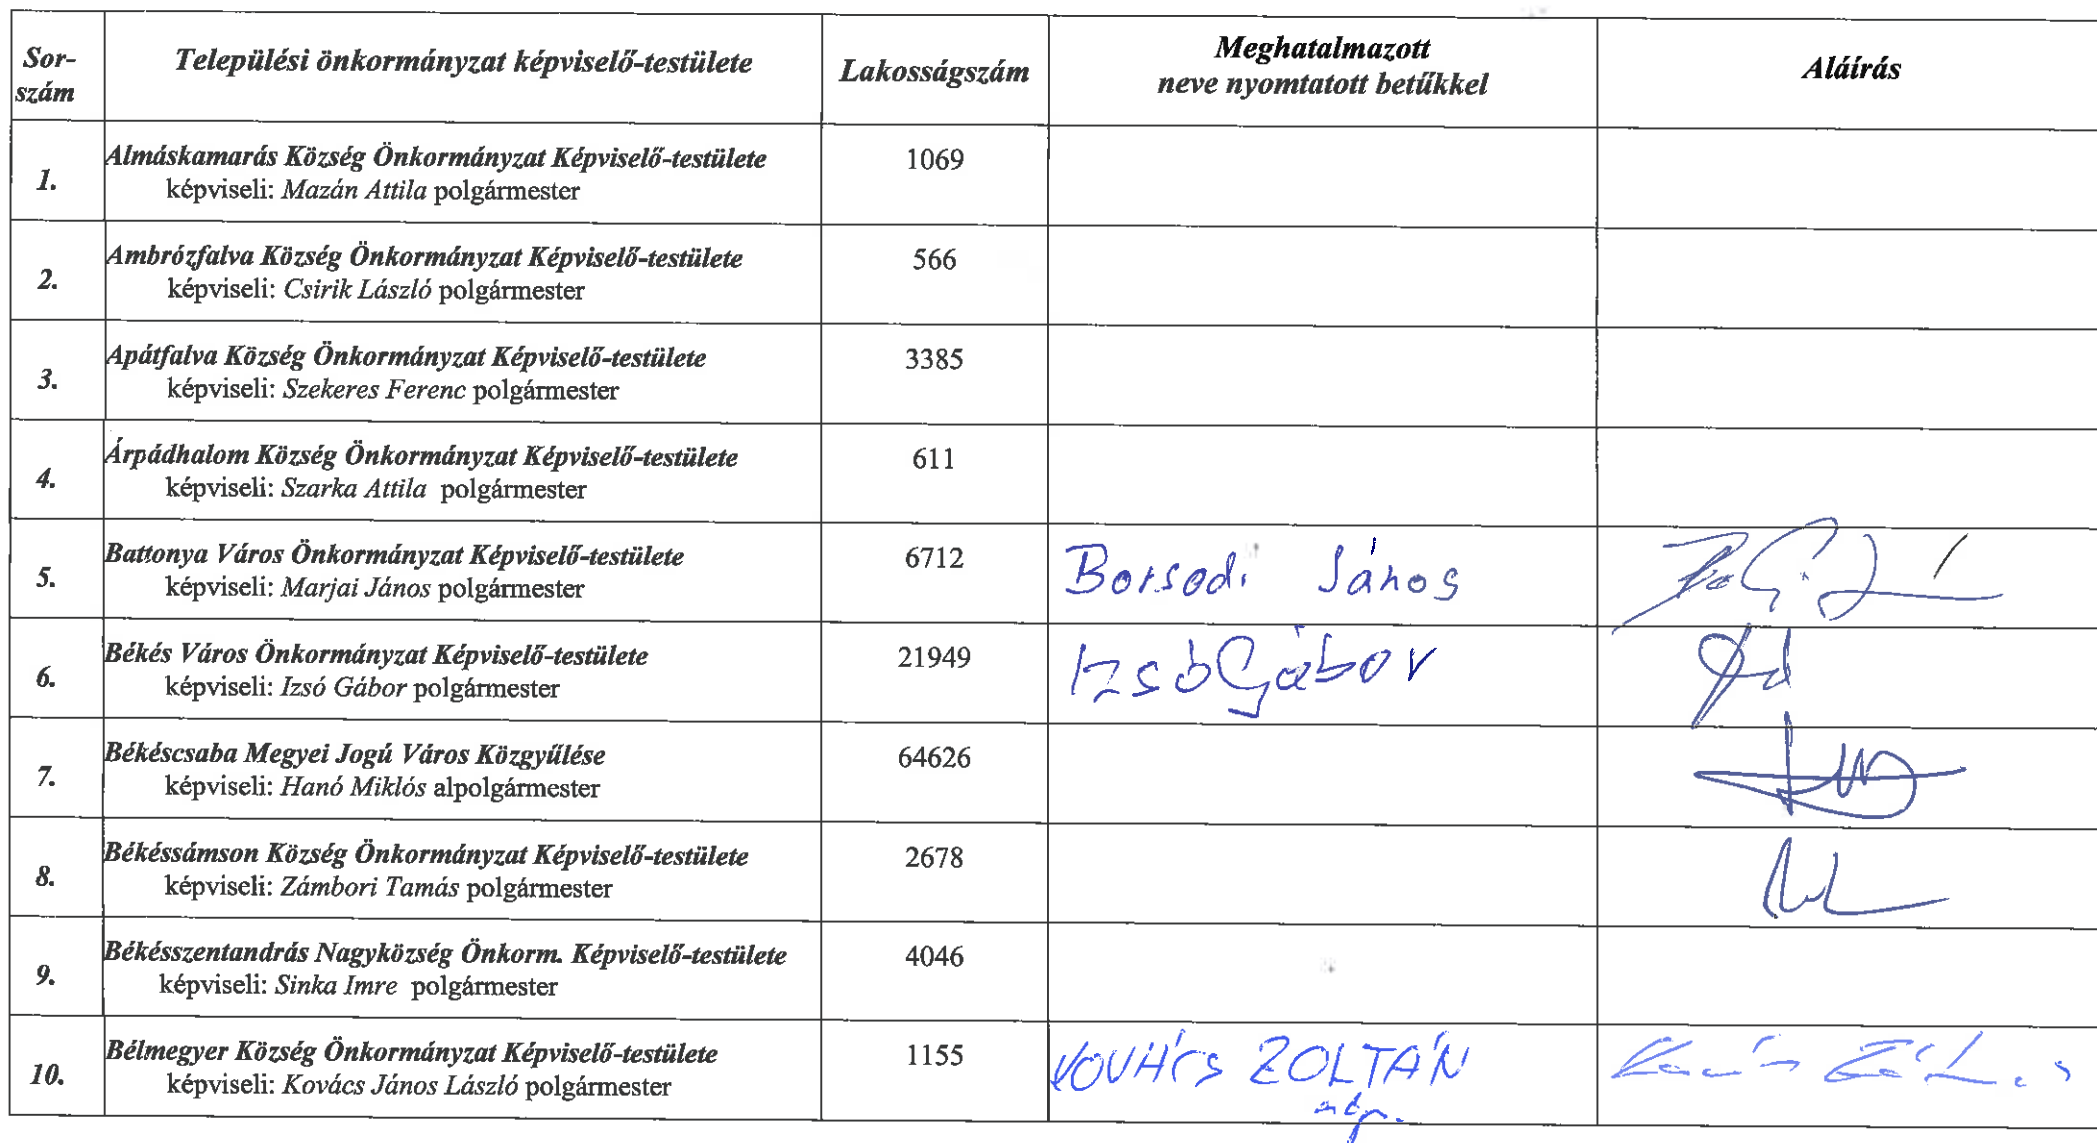 Sor-
szám
Települési önkormányzat képviselő-testülete
Lakosságszám
Meghatalmazott
neve nyomtatott betűkkel
Aláírás
1.
Almáskamarás Község Önkormányzat Képviselő-testülete
képviseli: Mazán Attila polgármester
1069
2.
Ambrózfalva Község Önkormányzat Képviselő-testülete
képviseli: Csirik László polgármester
566
3.
Apátfalva Község Önkormányzat Képviselő-testülete
képviseli: Szekeres Ferenc polgármester
3385
4.
Árpádhalom Község Önkormányzat Képviselő-testülete
képviseli: Szarka Attila polgármester
611
5.
Battonya Város Önkormányzat Képviselő-testülete
képviseli: Marjai János polgármester
6712
Borsodi János
6.
Békés Város Önkormányzat Képviselő-testülete
képviseli: Izsó Gábor polgármester
21949
Izsó Gábor
7.
Békéscsaba Megyei Jogú Város Közgyűlése
képviseli: Hanó Miklós alpolgármester
64626
8.
Békéssámson Község Önkormányzat Képviselő-testülete
képviseli: Zámbori Tamás polgármester
2678
9.
Békésszentandrás Nagyközség Önkorm. Képviselő-testülete
képviseli: Sinka Imre polgármester
4046
10.
Bélmegyer Község Önkormányzat Képviselő-testülete
képviseli: Kovács János László polgármester
1155
KOVÁCS ZOLTÁN